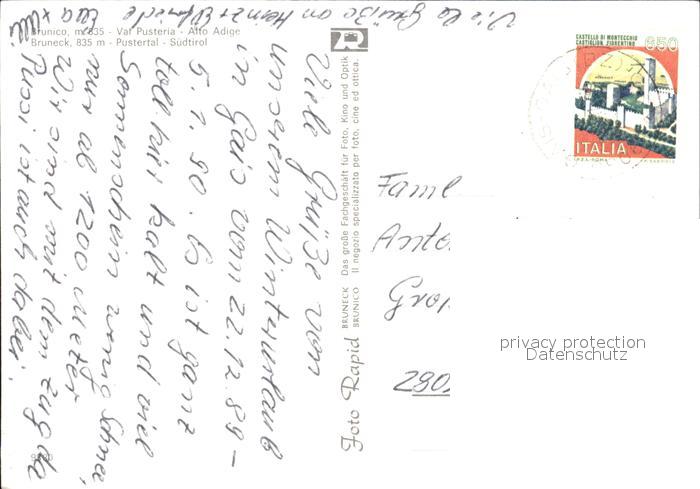 Brunico, m. 835 - Val Pusteria - Alto Adige
Bruneck, 835 m - Pustertal - Südtirol
Viele Grüße von
unserem Winterurlaub
in Gais vom 22.12.89 –
5.1.90. Es ist ganz
toll hier kalt und viel
Sonnenschein wenig Schnee,
nur ab 1200 meter
Wir sind mit dem Zug da
Pussi ist auch dabei.
Viele Grüße an Heinz + Elfriede
Foto Rapid BRUNECK
BRUNICO
Das große Fachgeschäft für Foto, Kino und Optik
Il negozio specializzato per foto, cine ed ottica.
CASTELLO DI MONTECCHIO
CASTIGLION FIORENTINO
650
ITALIA
I.P.Z.S.-ROMA
Faml
Ante
Gro
280
privacy protection
Datenschutz